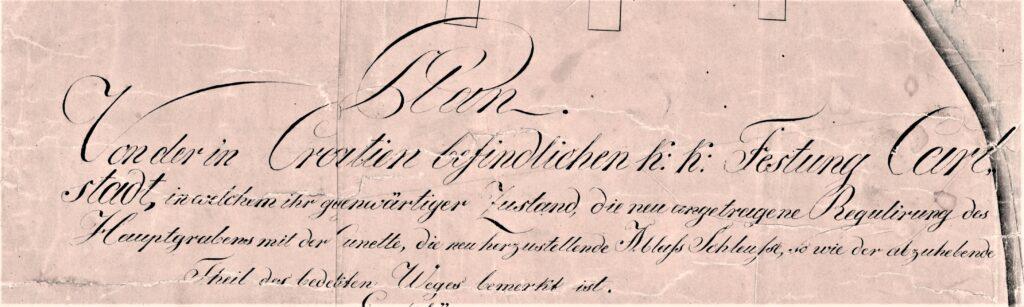 Plan.
Von der in Croatien befindlichen k: k: Festung Carl,
stadt, in welchem ihr gegenwärtiger Zustand, die neu angetragene Regulirung des
Hauptgrabens mit der Cunette, die neu herzustellende Ablaß Schleuße, so wie der abzuhebende
Theil des bedekten Weges bemerkt ist.